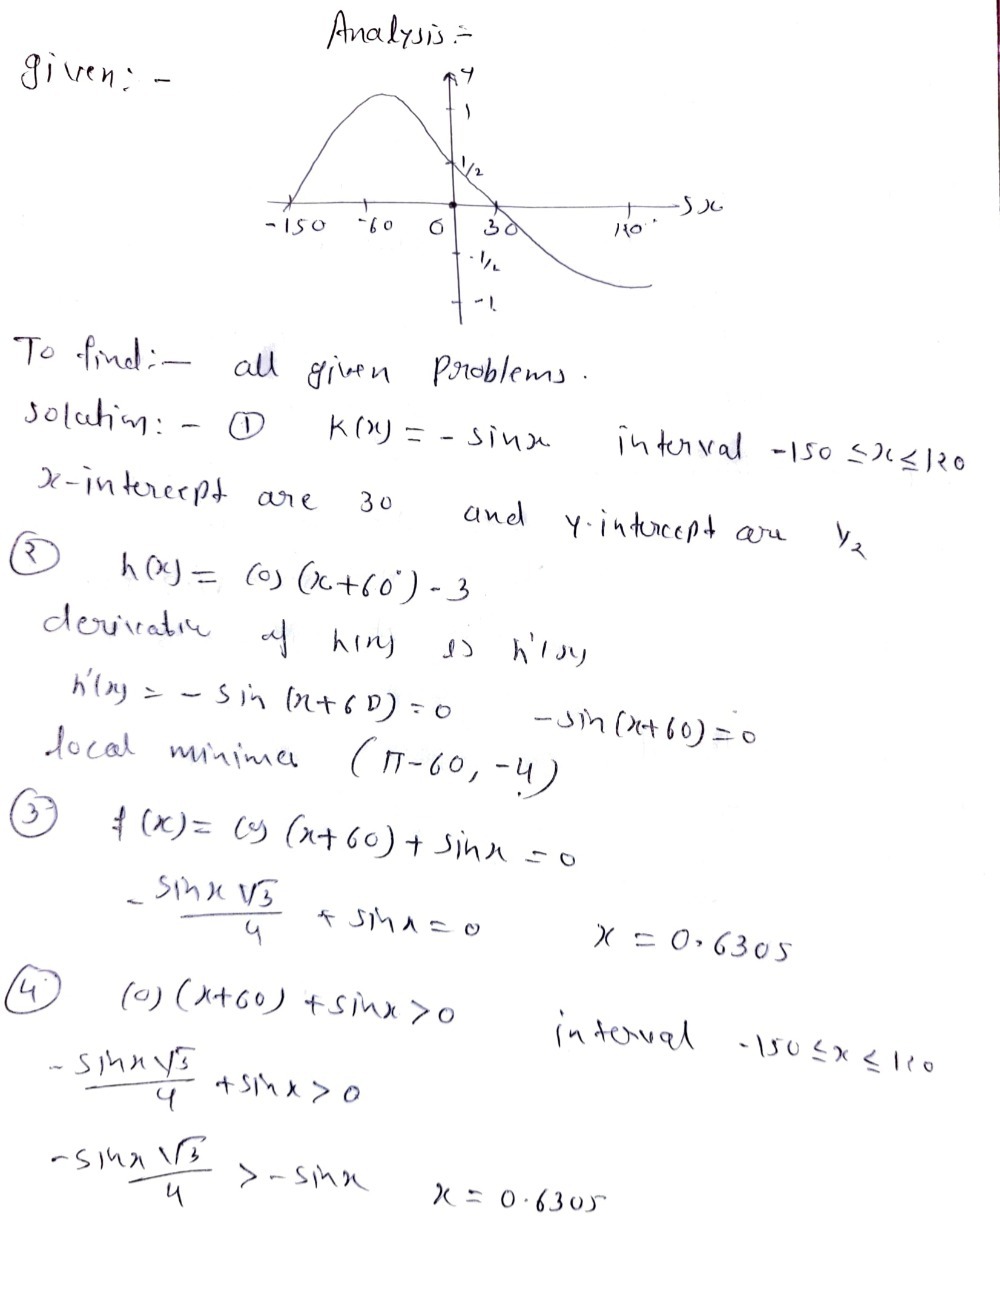 Analysis :-
given : -
y
1
1/2
-150 -60 0 30 120° x
-1/2
-1
To find :- all given problems.
solution : - ① K(x) = - sinx interval -150 ≤ x ≤ 120
x-intercept are 30 and y-intercept are 1/2
② h(x) = cos (x+60°) - 3
derivative of h(x) is h'(x)
h'(x) = - sin (x+60) = 0 -sin(x+60) = 0
local minima (π-60, -4)
③ f(x) = cos (x+60) + sinx = 0
- sinx √3 / 4 + sinx = 0 x = 0.6305
④ cos (x+60) + sinx > 0 interval -150 ≤ x ≤ 120
- sinx √3 / 4 + sinx > 0
- sinx √3 / 4 > - sinx x = 0.6305